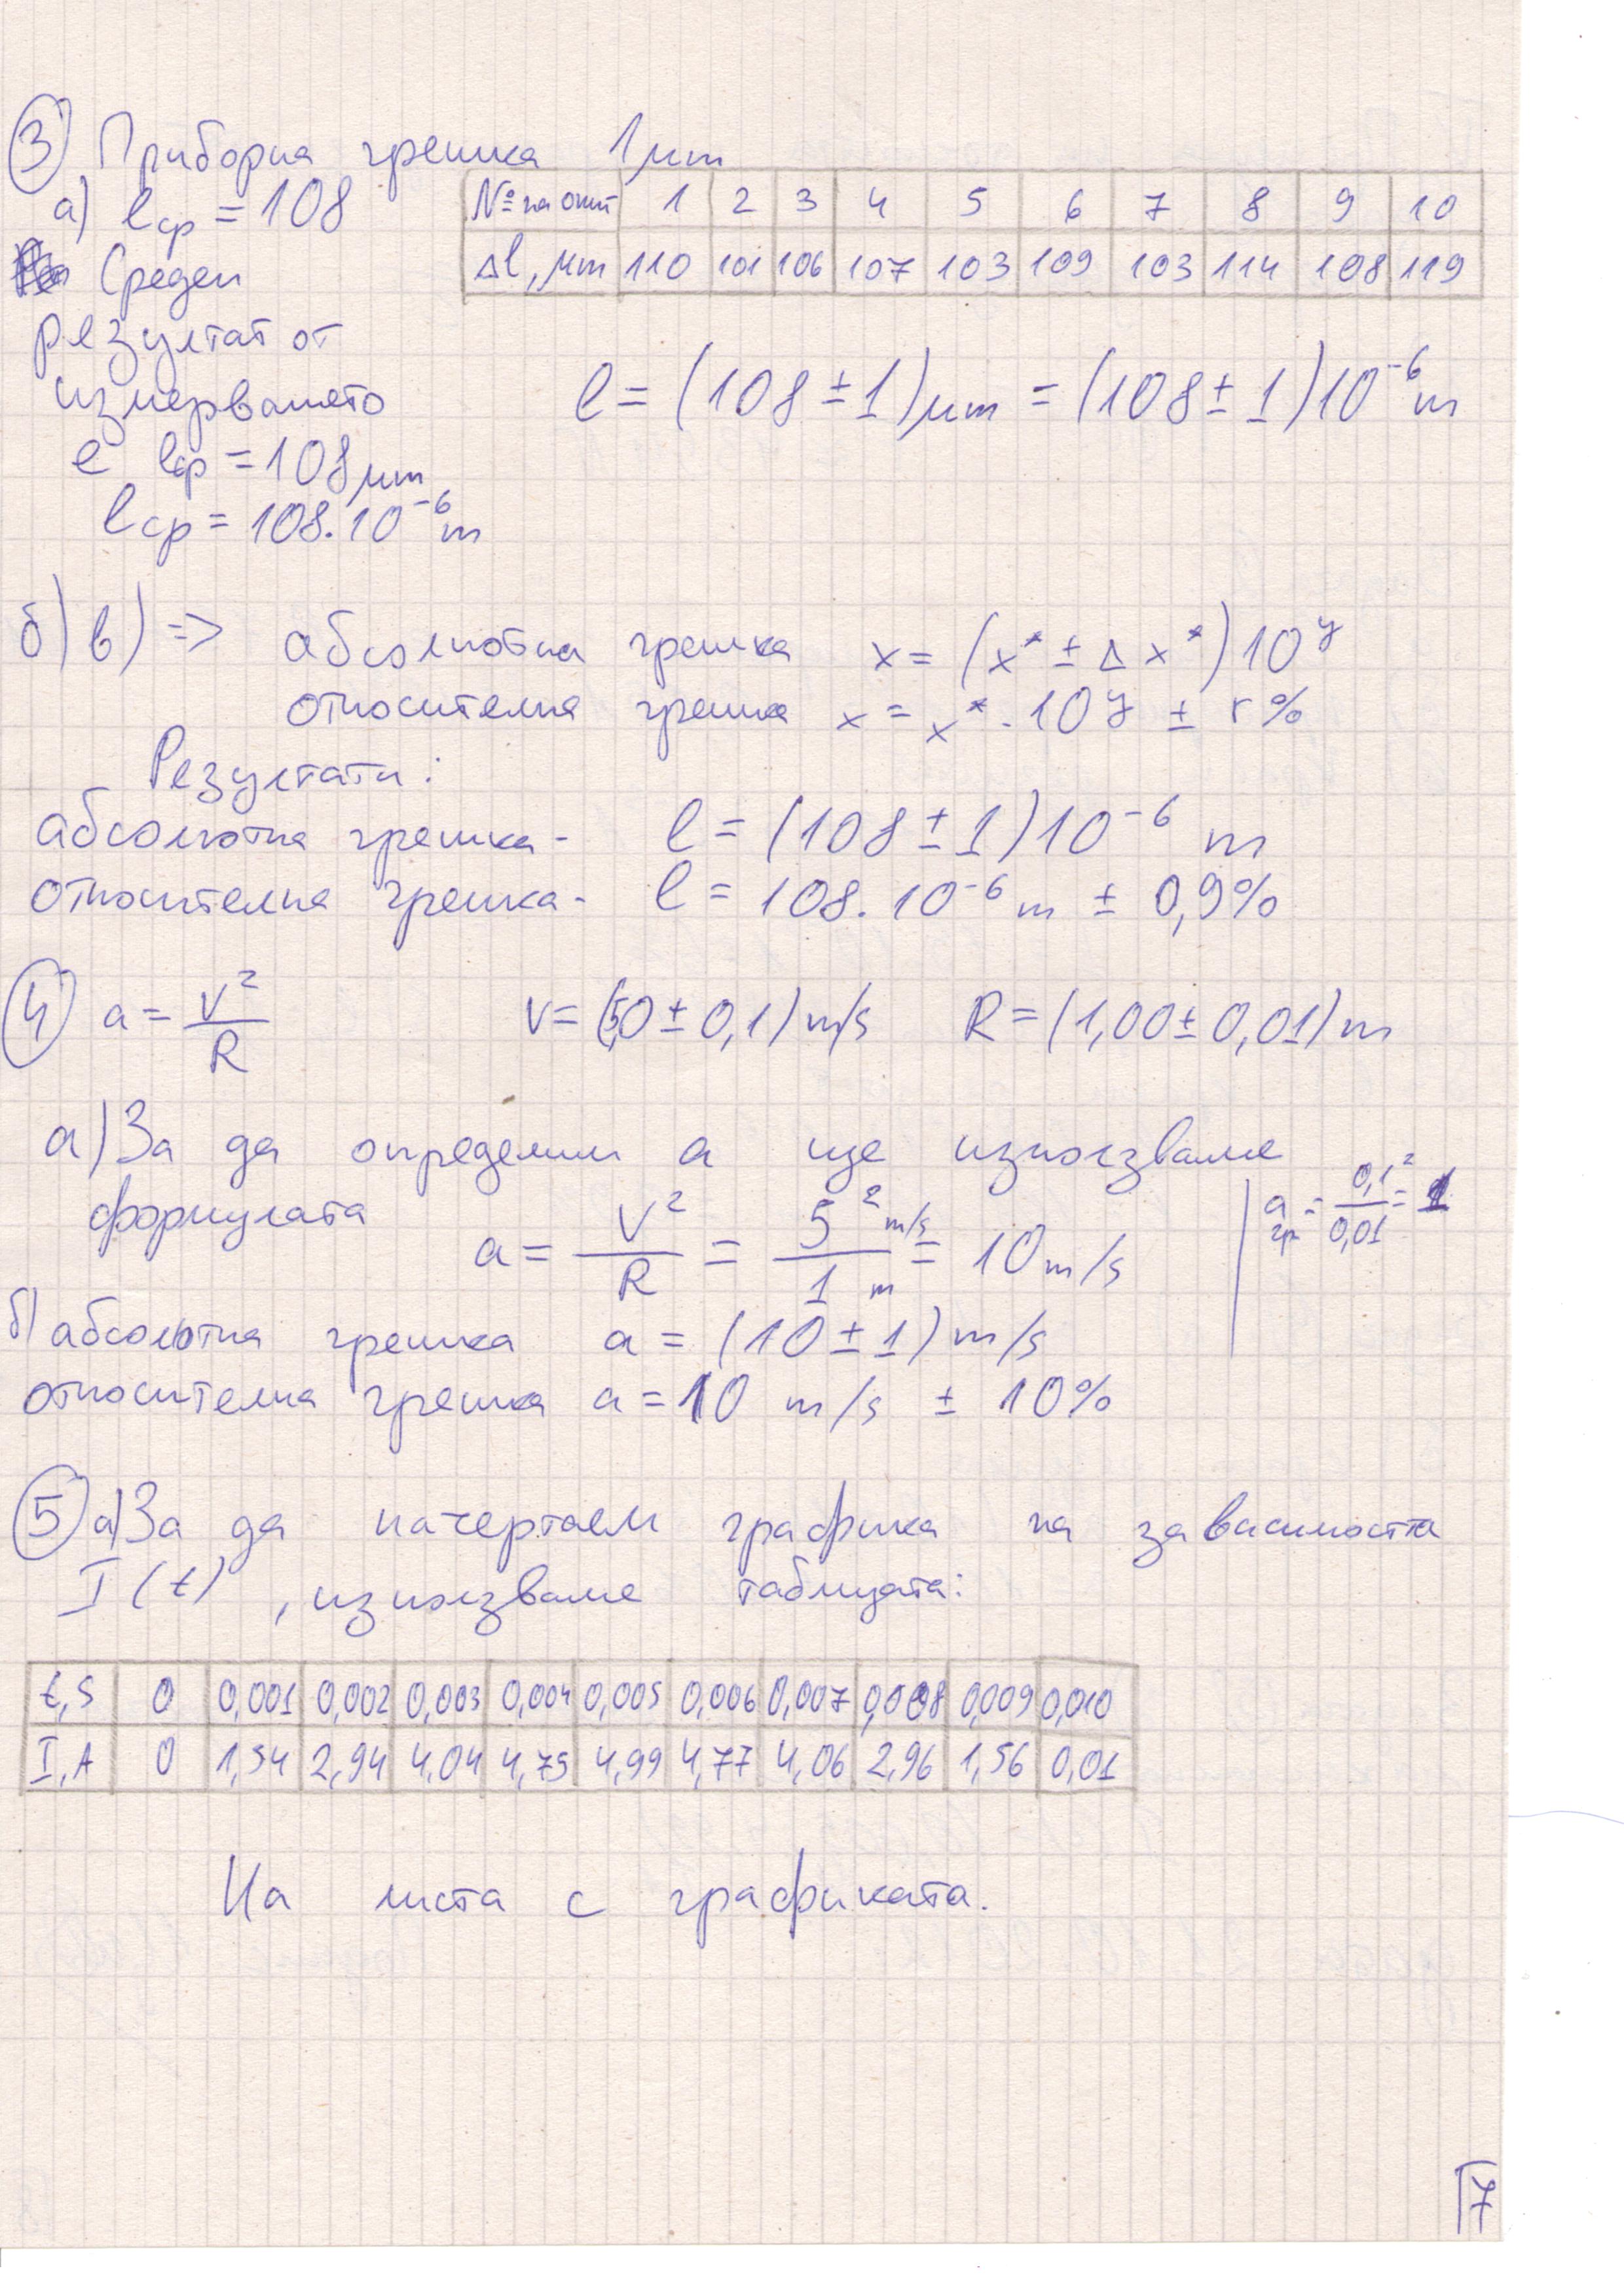 ③ Приборна грешка 1μm
а) lср = 108
№ на опит 1 2 3 4 5 6 7 8 9 10
Δl, μm 110 101 106 107 103 109 103 114 108 119
Среден
резултат от
измерването
е lср = 108 μm
lср = 108.10⁻⁶ m
l = (108 ± 1) μm = (108 ± 1)10⁻⁶ m
б) в) => абсолютна грешка x = (x* ± Δx*)10^y
относителна грешка x = x*.10^y ± r%
Резултати:
абсолютна грешка - l = (108 ± 1)10⁻⁶ m
относителна грешка - l = 108.10⁻⁶ m ± 0,9%
④ a = v²/R v = (5,0 ± 0,1) m/s R = (1,00 ± 0,01) m
а) За да определим a ще използваме
формулата a = v²/R = 5² m/s / 1 m = 10 m/s
aгр = 0,1²/0,01 = 1
б) абсолютна грешка a = (10 ± 1) m/s
относителна грешка a = 10 m/s ± 10%
⑤ а) За да начертаем графика на зависимостта
I(t), използваме таблицата:
t, s 0 0,001 0,002 0,003 0,004 0,005 0,006 0,007 0,008 0,009 0,010
I, A 0 1,54 2,94 4,04 4,75 4,99 4,77 4,06 2,96 1,56 0,01
На листа с графиката.
7